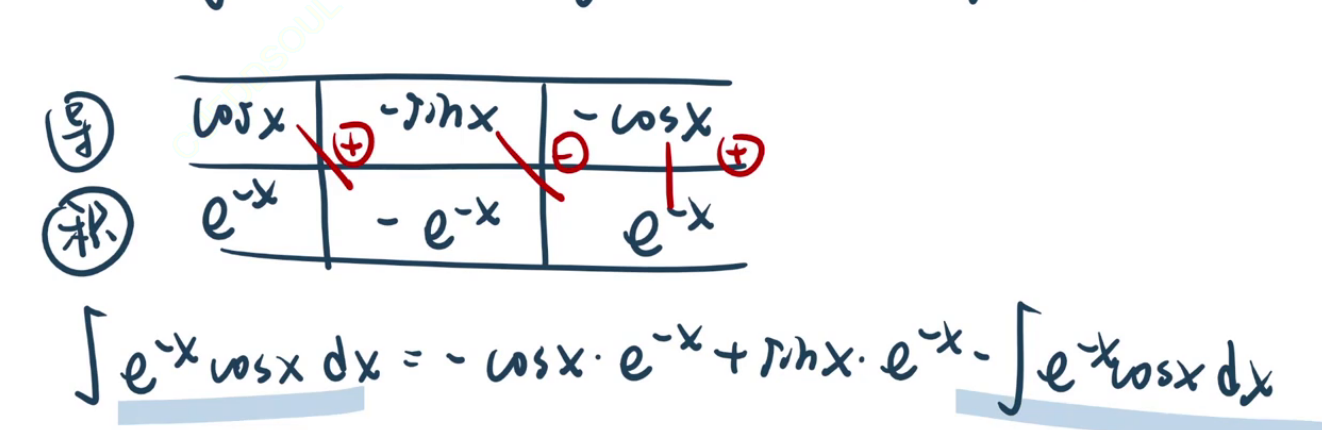 导 cosx ⊕ -sinx ⊖ -cosx ⊕
积 e^{-x} -e^{-x} e^{-x}
∫e^{-x}cosx dx = -cosx·e^{-x}+sinx·e^{-x}-∫e^{-x}cosx dx